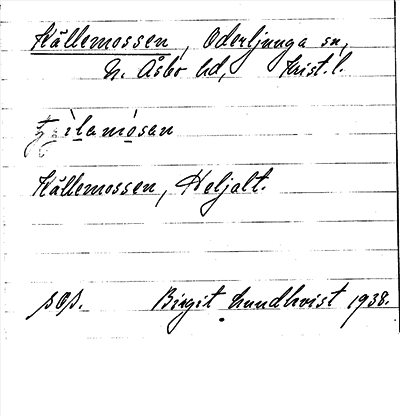 Källemossen, Oderljunga sn,
N. Åsbo hd, Krist. l.
Källemossen, Heljalt.
sop. Birgit Lundkvist 1938.